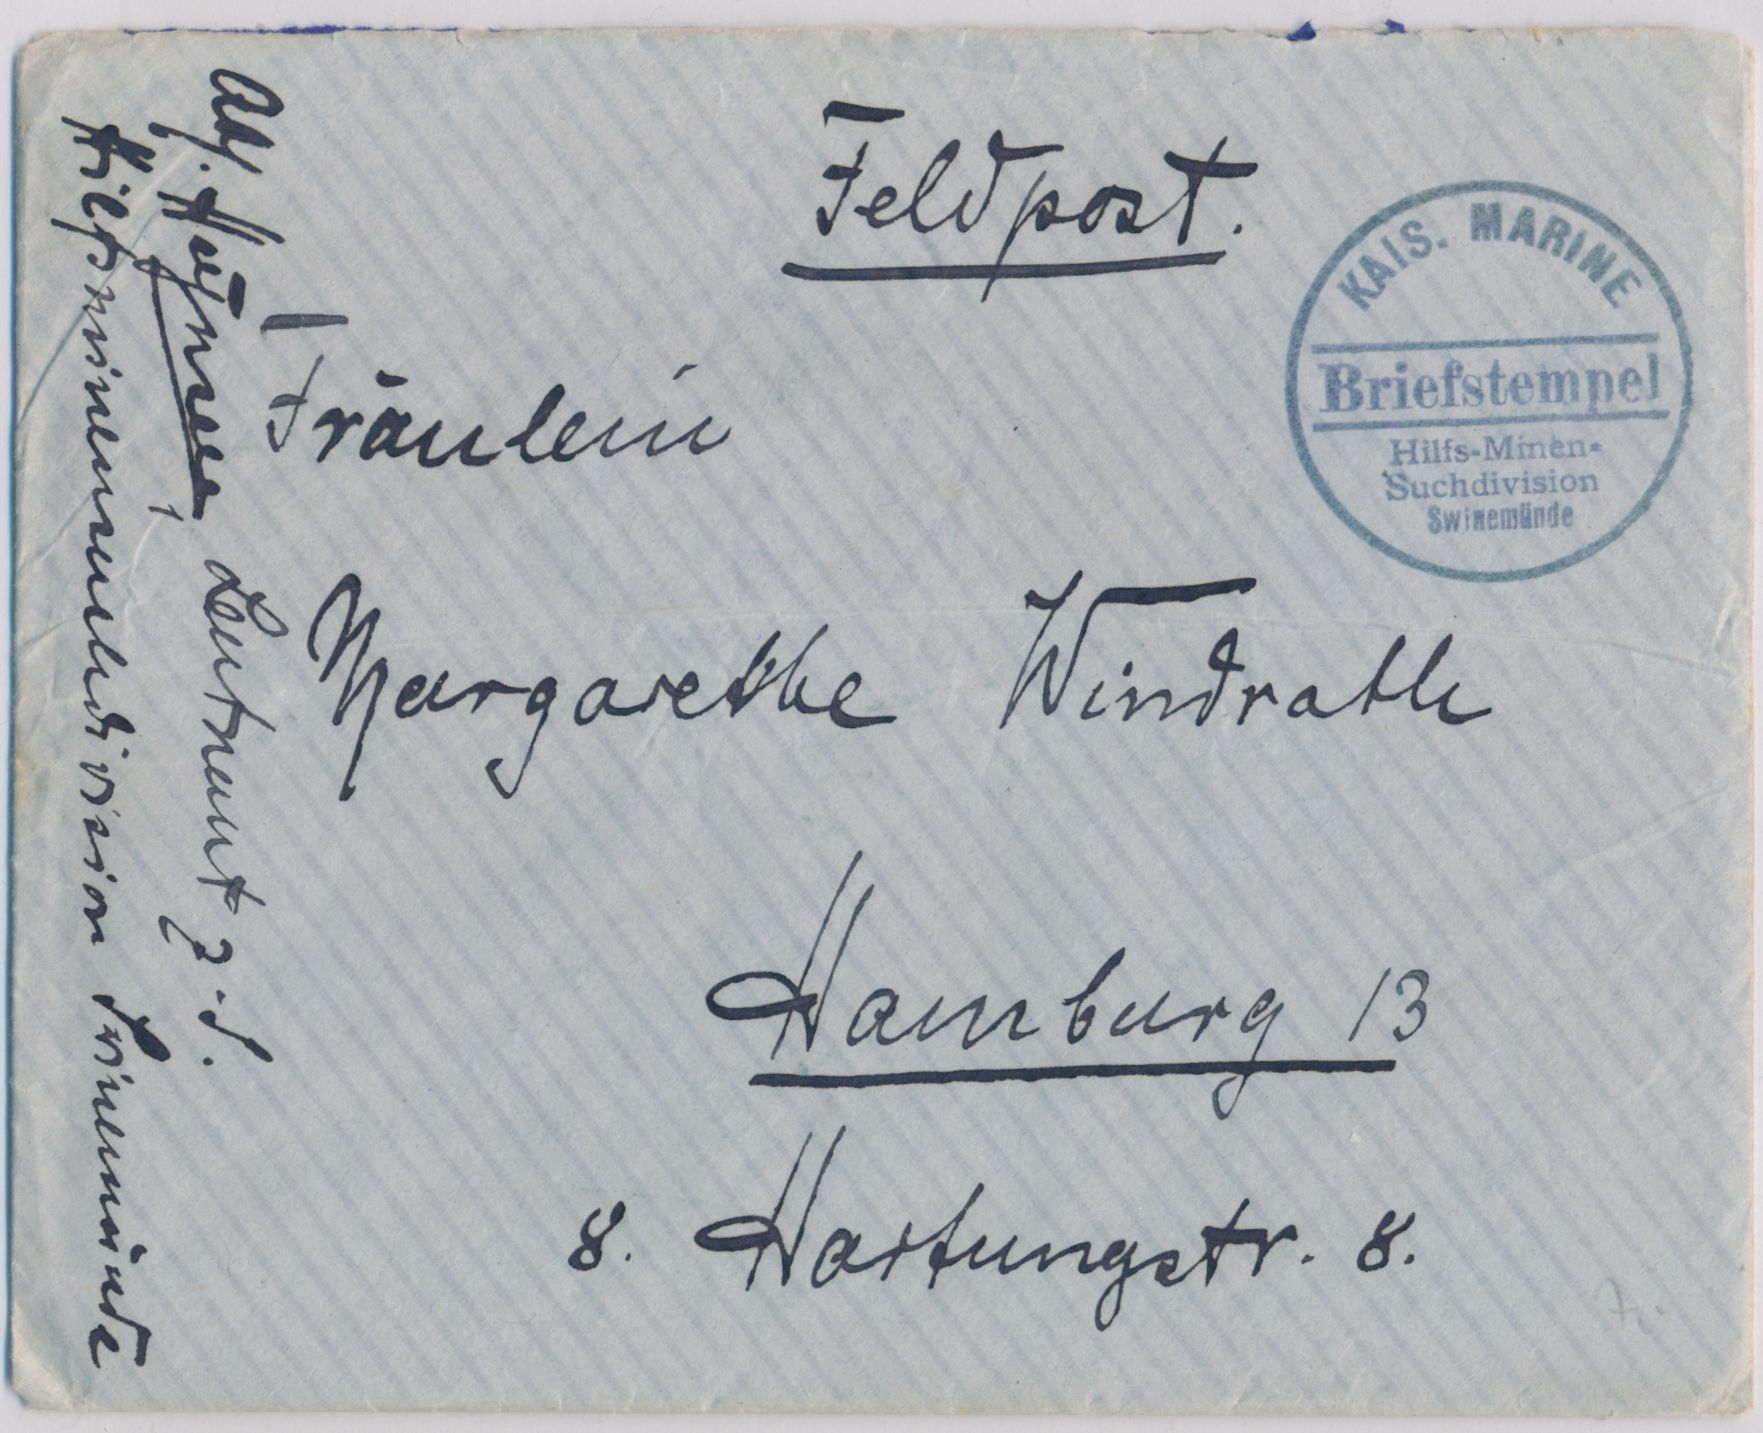 Feldpost.
KAIS. MARINE
Briefstempel
Hilfs-Minen-
Suchdivision
Swinemünde
Fräulein
Margarethe Windrath
Hamburg 13
8. Hartungstr. 8.
Abs. Leutnant z. S.
Hilfsminensuchdivision Swinemünde